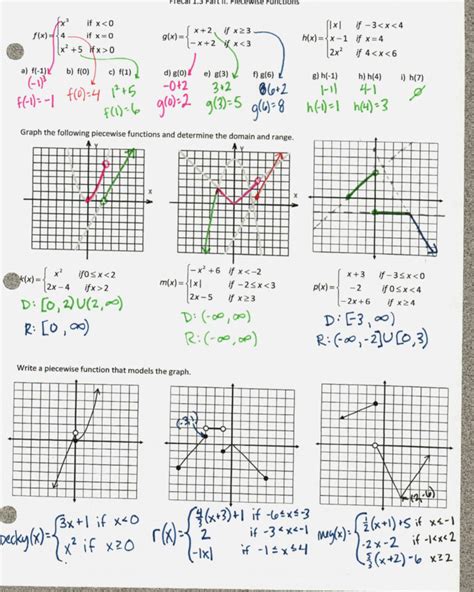 Precal 1.3 Part II: Piecewise Functions
f(x)= { x³ if x<0
4 if x=0
x²+5 if x>0
g(x)= { x+2, if x≥3
-x+2 if x<3
h(x)= { |x| if -3<x<4
x-1 if x=4
2x² if 4<x<6
a) f(-1) b) f(0) c) f(1) d) g(0) e) g(3) f) g(6) g) h(-1) h) h(4) i) h(7)
(-1)³
f(-1)=-1
f(0)=4
1²+5
f(1)=6
-0+2
g(0)=2
3+2
g(3)=5
6+2
g(6)=8
|-1|
h(-1)=1
4-1
h(4)=3
∅
Graph the following piecewise functions and determine the domain and range.
y
x
y
x
k(x)= { x² if 0≤x<2
2x-4 if x>2
D: [0,2)U(2,∞)
R: [0,∞)
m(x)= { -x²+6 if x<-2
|x| if -2≤x<3
2x-5 if x≥3
D: (-∞,∞)
R: (-∞,∞)
p(x)= { x+3 if -3≤x<0
-2 if 0≤x<4
-2x+6 if x≥4
D: [-3,∞)
R: (-∞,-2]U[0,3)
Write a piecewise function that models the graph.
(-3,1)
(2,-6)
Becky(x)= { 3x+1 if x<0
x² if x≥0
r(x)= { 4/3(x+3)+1 if -6≤x≤-3
2 if -3<x<-1
-|x| if -1≤x≤4
{ 1/2(x+1)+5 if x<-1
-2x-2 if -1<x<2
5/3(x+2)-6 x≥2